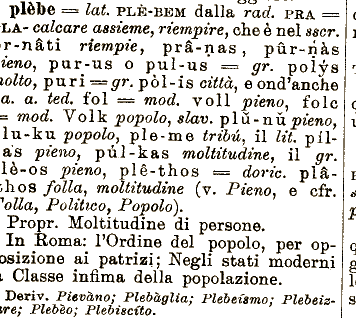 plèbe = lat. PLÈ-BEM dalla rad. PRA =
LA- calcare assieme, riempire, che è nel sscr.
r-nâti riempie, prâ-ṇas, pûr-ṇàs
ieno, pur-us o pul-us = gr. polýs
olto, puri = gr. pòl-is città, e ond'anche
a. a. ted. fol = mod. voll pieno, folc
= mod. Volk popolo, slav. plŭ-nŭ pieno,
lu-ku popolo, ple-me tribú, il lit. píl-
as pieno, púl-kas moltitudine, il gr.
lè-os pieno, plê-thos = doric. plâ-
thos folla, moltitudine (v. Pieno, e cfr.
olla, Politico, Popolo).
Propr. Moltitudine di persone.
In Roma: l'Ordine del popolo, per op-
osizione ai patrizi; Negli stati moderni
a Classe infima della popolazione.
Deriv. Pievàno; Plebàglia; Plebeísmo; Plebeiz-
re; Plebèo; Plebiscíto.